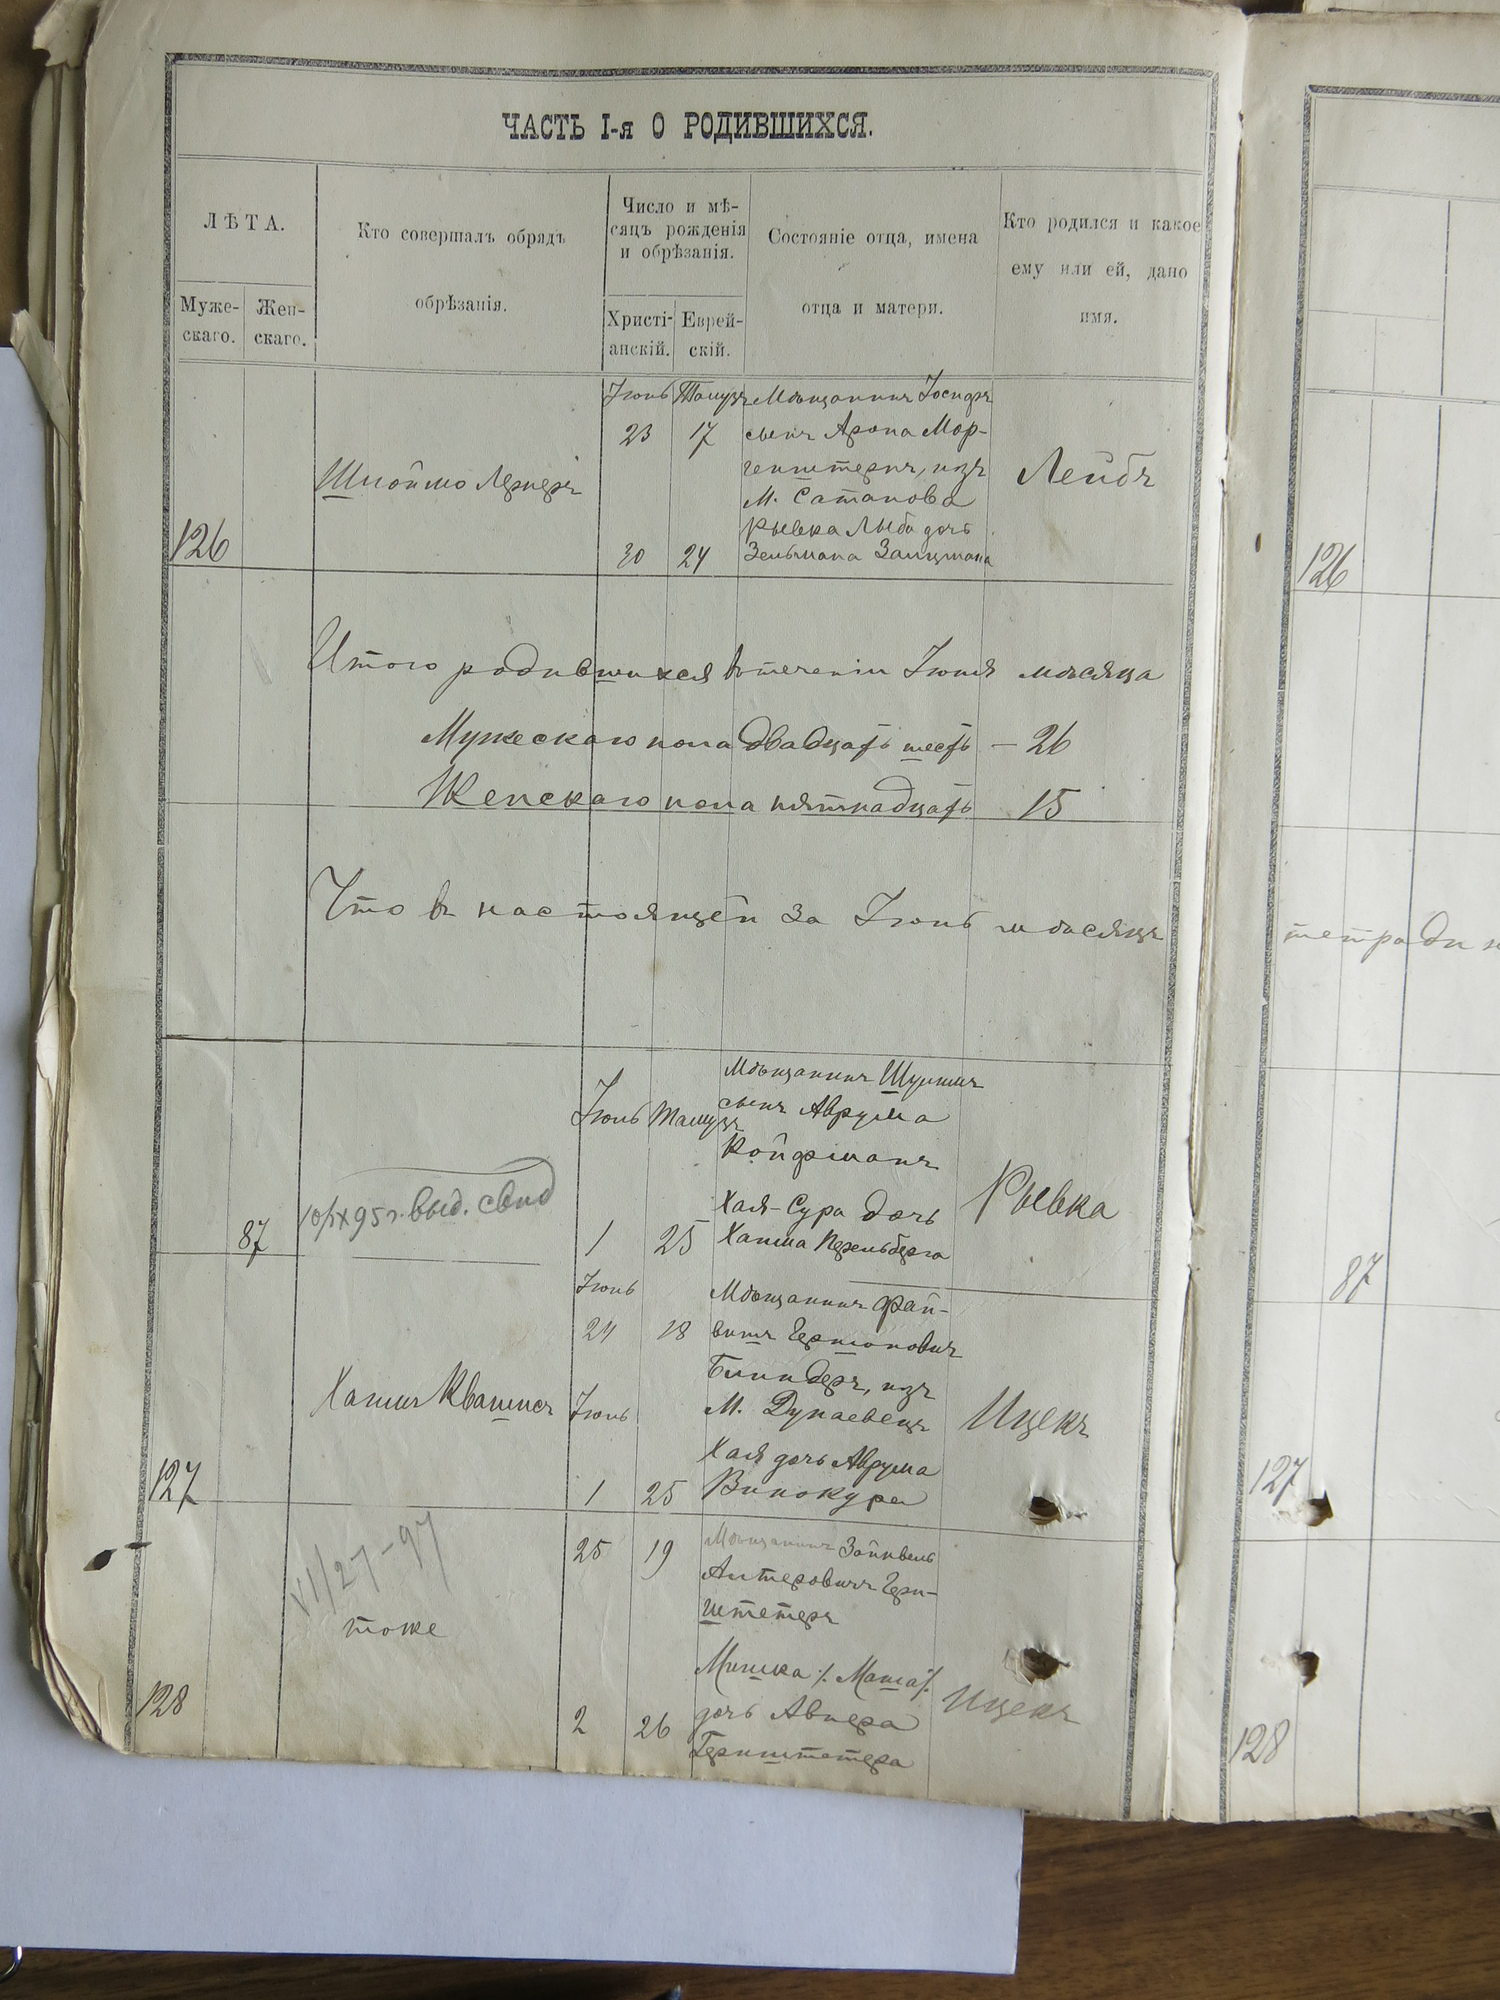 ЧАСТЬ I-я О РОДИВШИХСЯ.
ЛѢТА.
Муже-
скаго.
Жен-
скаго.
Кто совершалъ обрядъ
обрѣзанія.
Число и мѣ-
сяцъ рожденія
и обрѣзанія.
Христі-
анскій.
Еврей-
скій.
Состояніе отца, имена
отца и матери.
Кто родился и какое
ему или ей, дано
имя.
126
Шлоймо Лернеръ
Іюнь Тамузъ
23 17
30 24
Мѣщанинъ Іосифъ
сынъ Арона Мор-
генштернъ, изъ
М. Сатанова
Рывка Лыба дочь
Зельмана Залцмана
Лейбъ
Итого родившихся втеченіи Іюня мѣсяца
Мужескаго пола двадцать шесть — 26
Женскаго пола пятнадцать 15
Что въ настоящей за Іюнь мѣсяцъ
87
10/IX 95 г. выд. свид
Іюль Тамузъ
1 25
Мѣщанинъ Шулимъ
сынъ Аврума
Койфманъ
Хая-Сура дочь
Хаима Перельберга
Рывка
127
Хаимъ Квашисъ
Іюнь
24 18
Іюль
1 25
Мѣщанинъ Фай-
вишъ Гершоновичъ
Блиндеръ, изъ
М. Дунаевецъ
Хая дочь Аврума
Винокура
Ицекъ
128
VI/27-97
тоже
25 19
2 26
Мѣщанинъ Зайвель
Алтеровичъ Герн-
штетеръ
Минька /. Маша /.
дочь Авнера
Гернштетера
Ицекъ
126
тетради
87
127
128